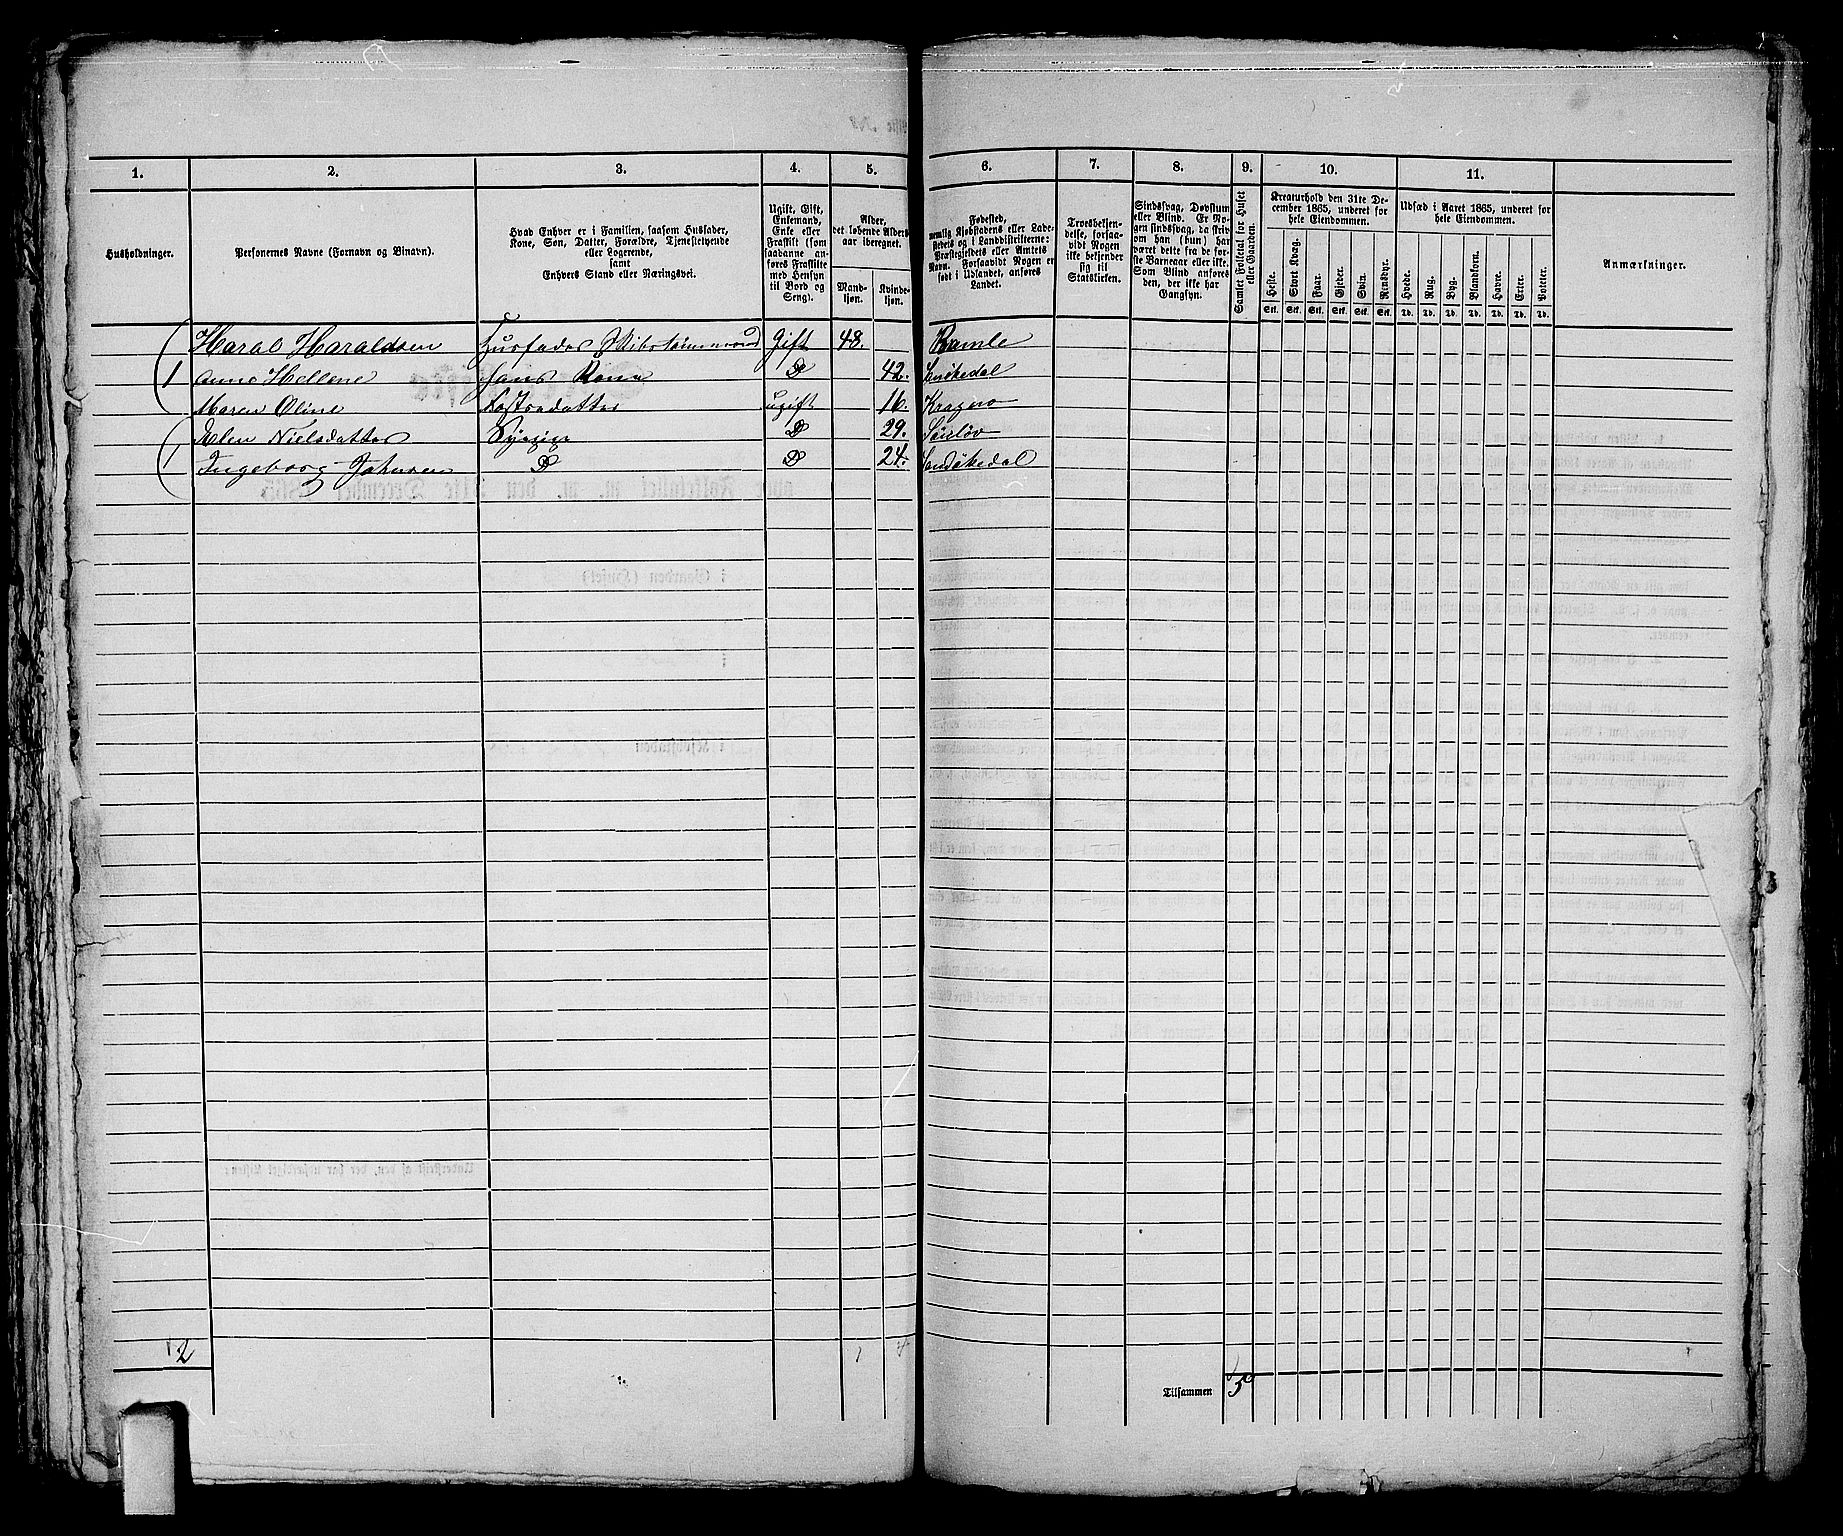 1. 2. 3. 4. 5. 6. 7. 8. 9. 10. 11.
Husholdninger.
Personernes Navne (Fornavn og Binavn).
Hvad Enhver er i Familien, saasom Husfader,
Kone, Søn, Datter, Forældre, Tjenestetyende
eller Logerende,
samt
Enhvers Stand eller Næringsvei.
Ugift, Gift,
Enkemand,
Enke eller
Fraskilt (som
saadanne an-
føres Fraskilte
med Hensyn
til Bord og
Seng).
Alder,
det løbende Alders-
aar iberegnet.
Mand-
kjøn.
Kvinde-
kjøn.
Fødested,
nemlig Kjøbstadens eller Lade-
stedets og i Landdistrikterne:
Præstegjeldets eller Amtets
Navn. Forsaavidt Nogen er
født i Udlandet, anføres
Landet.
Troesbekjen-
delse, forsaa-
vidt Nogen
ikke bekjender
sig til
Statskirken.
Sindssvag, Døvstum
eller Blind. Er No-
gen sindssvag, da skrives
om han (hun) har
været dette fra de før-
ste Barneaar eller ikke.
Som Blind anføres
den, der ikke har
Gangsyn.
Samlet Folketal for Huset
eller Gaarden.
Kreaturhold den 31te De-
cember 1865, underet for
hele Eiendommen.
Heste. Stort Kvæg. Faar. Gjeder. Svin. Rensdyr.
Stk. Stk. Stk. Stk. Stk. Stk.
Udsæd i Aaret 1865, underet for
hele Eiendommen.
Hvede. Rug. Byg. Blandkorn. Havre. Erter. Poteter.
Td. Td. Td. Td. Td. Td. Td.
Anmærkninger.
Haral Haraldsen Husfader Skibstømmermand Gift 48. Bamle
1 Anne Hellene Hans Kone D 42.
Maren Oline Fostredatter ugift 16. Kragerø
1 Elen Nielsdatter Syepige D 29.
Ingeborg Johnsen D D 24. Sandøkedal
2 1 4
Tilsammen 5